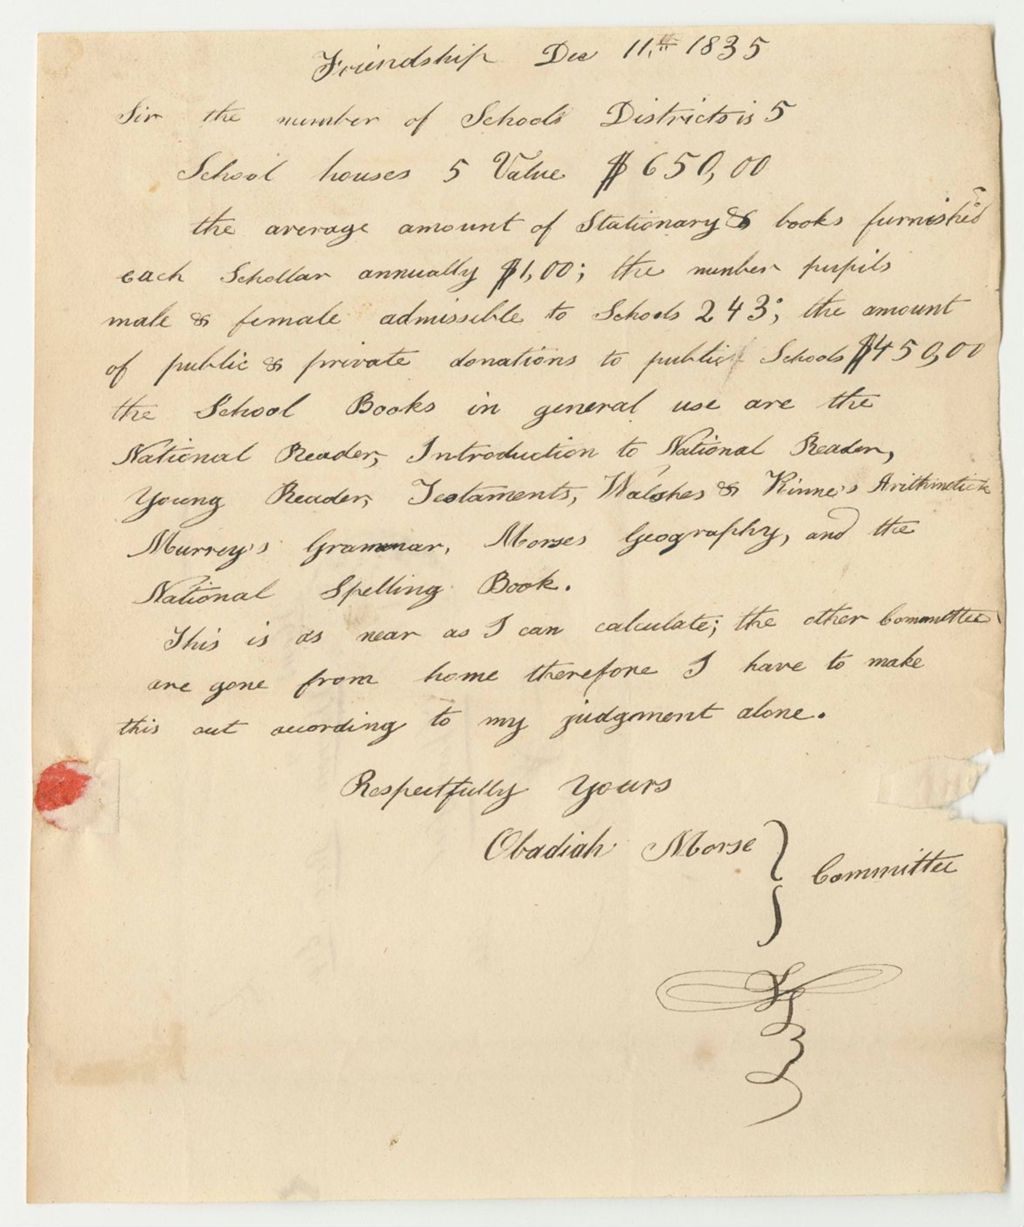 Friendship Dec 11.th 1835
Sir the number of Schools Districts is 5
School houses 5 Value $650,00
the average amount of Stationary & books furnished
each Schollar annually $1,00; the number pupils
male & female admissible to Schools 243; the amount
of public & private donations to public Schools $450,00
the School Books in general use are the
National Reader, Introduction to National Reader,
Young Reader, Testaments, Walshes & Kinne's Arithmetick
Murrey's Grammar, Morses Geography, and the
National Spelling Book.
This is as near as I can calculate; the other Committee
are gone from home therefore I have to make
this out acording to my judgment alone.
Respectfully Yours
Obadiah Morse } Committee